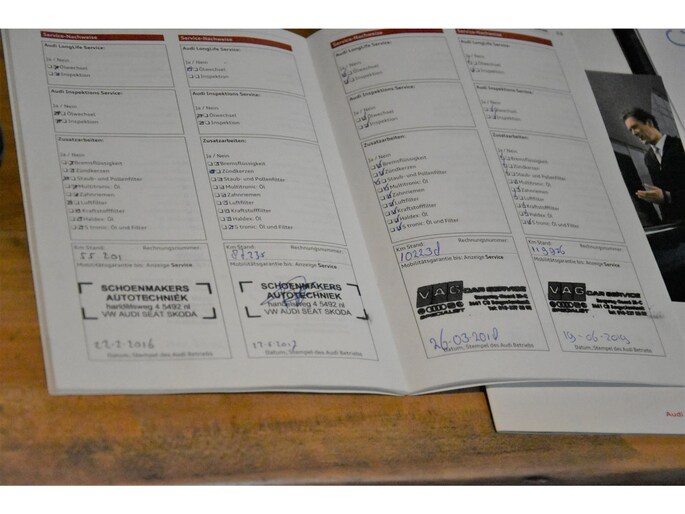 Service-Nachweise
Audi LongLife Service:
Ja / Nein
Ölwechsel
Inspektion
Audi Inspektions Service:
Ja / Nein
Ölwechsel
Inspektion
Zusatzarbeiten:
Ja / Nein
Bremsflüssigkeit
Zündkerzen
Staub- und Pollenfilter
Multitronic: Öl
Zahnriemen
Luftfilter
Kraftstofffilter
Haldex: Öl
S tronic: Öl und Filter
Km Stand: Rechnungsnummer:
55.201
Mobilitätsgarantie bis: Anzeige Service
SCHOENMAKERS
AUTOTECHNIEK
4 5492 nl
VW AUDI SEAT SKODA
22-2-2016
Datum, Stempel des Audi Betriebs
Service-Nachweise
Audi LongLife Service:
Ja / Nein
Ölwechsel
Inspektion
Audi Inspektions Service:
Ja / Nein
Ölwechsel
Inspektion
Zusatzarbeiten:
Ja / Nein
Bremsflüssigkeit
Zündkerzen
Staub- und Pollenfilter
Multitronic: Öl
Zahnriemen
Luftfilter
Kraftstofffilter
Haldex: Öl
S tronic: Öl und Filter
Km Stand: Rechnungsnummer:
Mobilitätsgarantie bis: Anzeige Service
SCHOENMAKERS
AUTOTECHNIEK
4 5492 nl
VW AUDI SEAT SKODA
Datum, Stempel des Audi Betriebs
Service-Nachweise
Audi LongLife Service:
Ja / Nein
Ölwechsel
Inspektion
Audi Inspektions Service:
Ja / Nein
Ölwechsel
Inspektion
Zusatzarbeiten:
Ja / Nein
Bremsflüssigkeit
Zündkerzen
Staub- und Pollenfilter
Multitronic: Öl
Zahnriemen
Luftfilter
Kraftstofffilter
Haldex: Öl
S tronic: Öl und Filter
Km Stand: Rechnungsnummer:
Mobilitätsgarantie bis: Anzeige Service
VAG CAR SERVICE
SPECIALIST
26-03-2018
Datum, Stempel des Audi Betriebs
Service-Nachweise
Audi LongLife Service:
Ja / Nein
Ölwechsel
Inspektion
Audi Inspektions Service:
Ja / Nein
Ölwechsel
Inspektion
Zusatzarbeiten:
Ja / Nein
Bremsflüssigkeit
Zündkerzen
Staub- und Pollenfilter
Multitronic: Öl
Zahnriemen
Luftfilter
Kraftstofffilter
Haldex: Öl
S tronic: Öl und Filter
Km Stand: Rechnungsnummer:
119976
Mobilitätsgarantie bis: Anzeige Service
VAG CAR SERVICE
SPECIALIST
19-06-2019
Datum, Stempel des Audi Betriebs
Audi